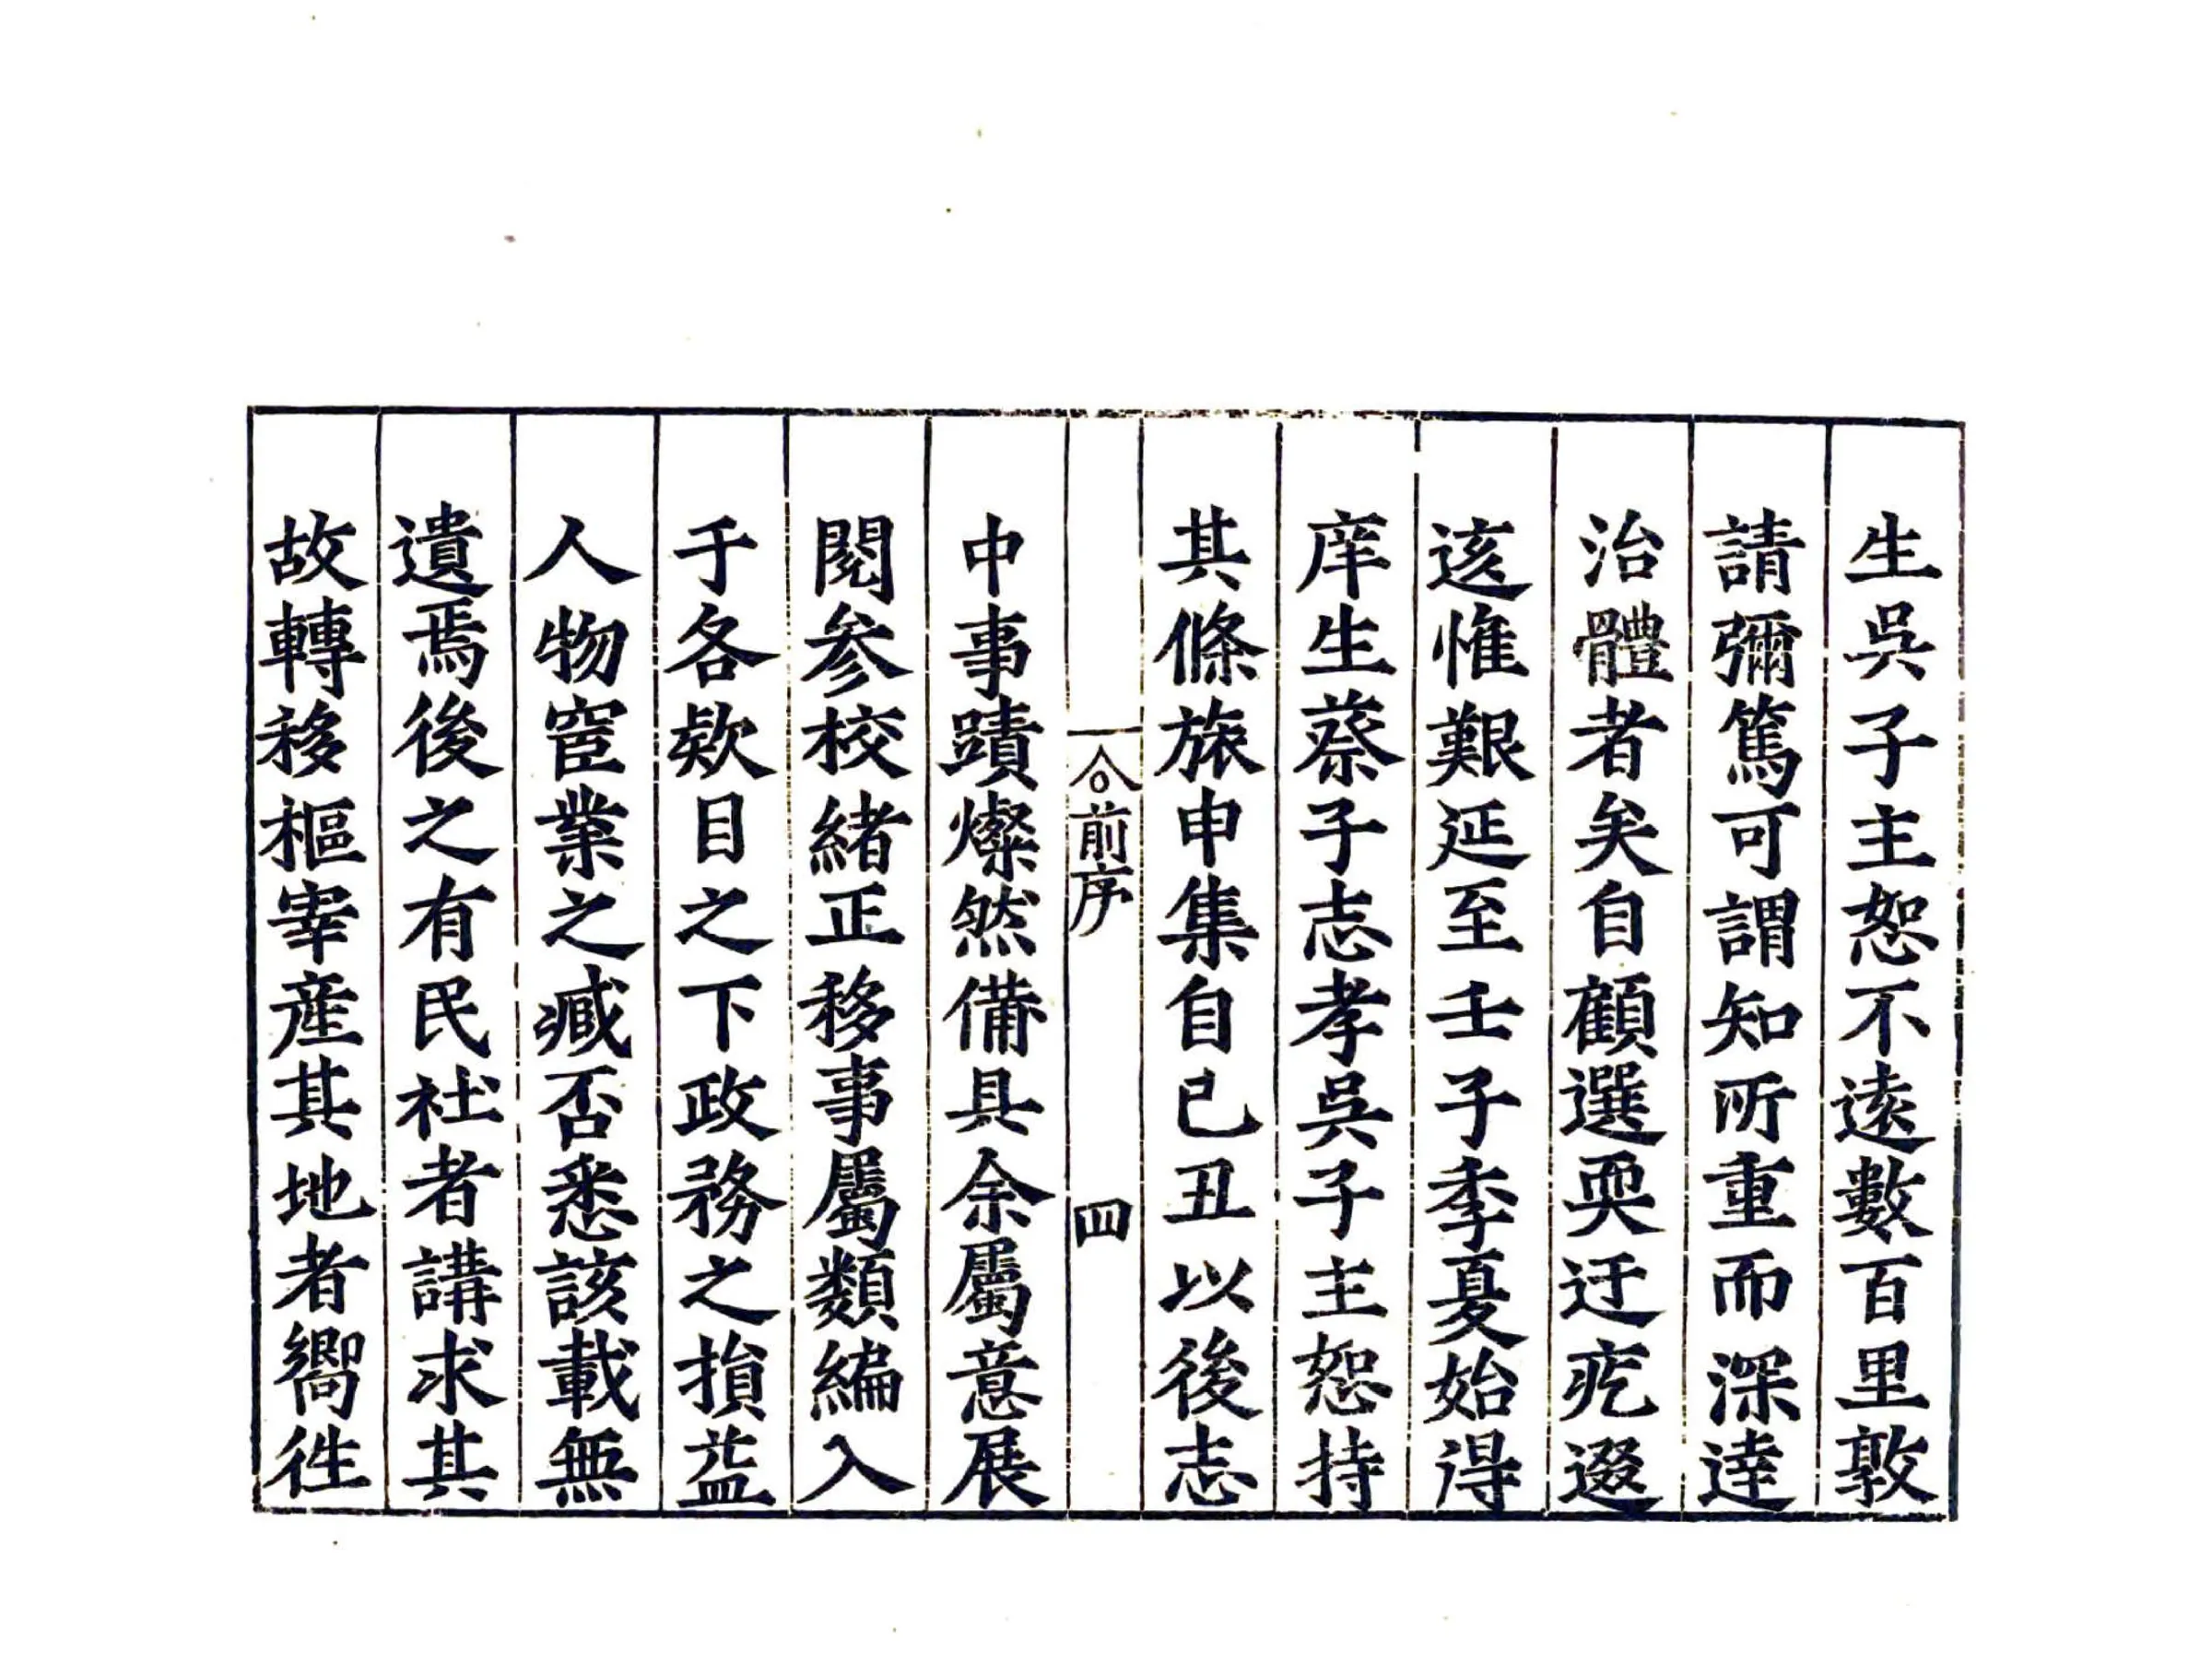 生吳子主恕不遠數百里敦
請彌篤可謂知所重而深達
治體者矣自顧選耎迂疪遝
該惟艱延至壬子季夏始得
庠生蔡子志孝吳子主恕持
其條旅申集自己丑以後志
前序 四
中事蹟燦然備具余屬意展
閱參校緒正移事屬類編入
于各欵目之下政務之損益
人物宦業之臧否悉該載無
遺焉後之有民社者講求其
故轉移樞宰產其地者嚮徃